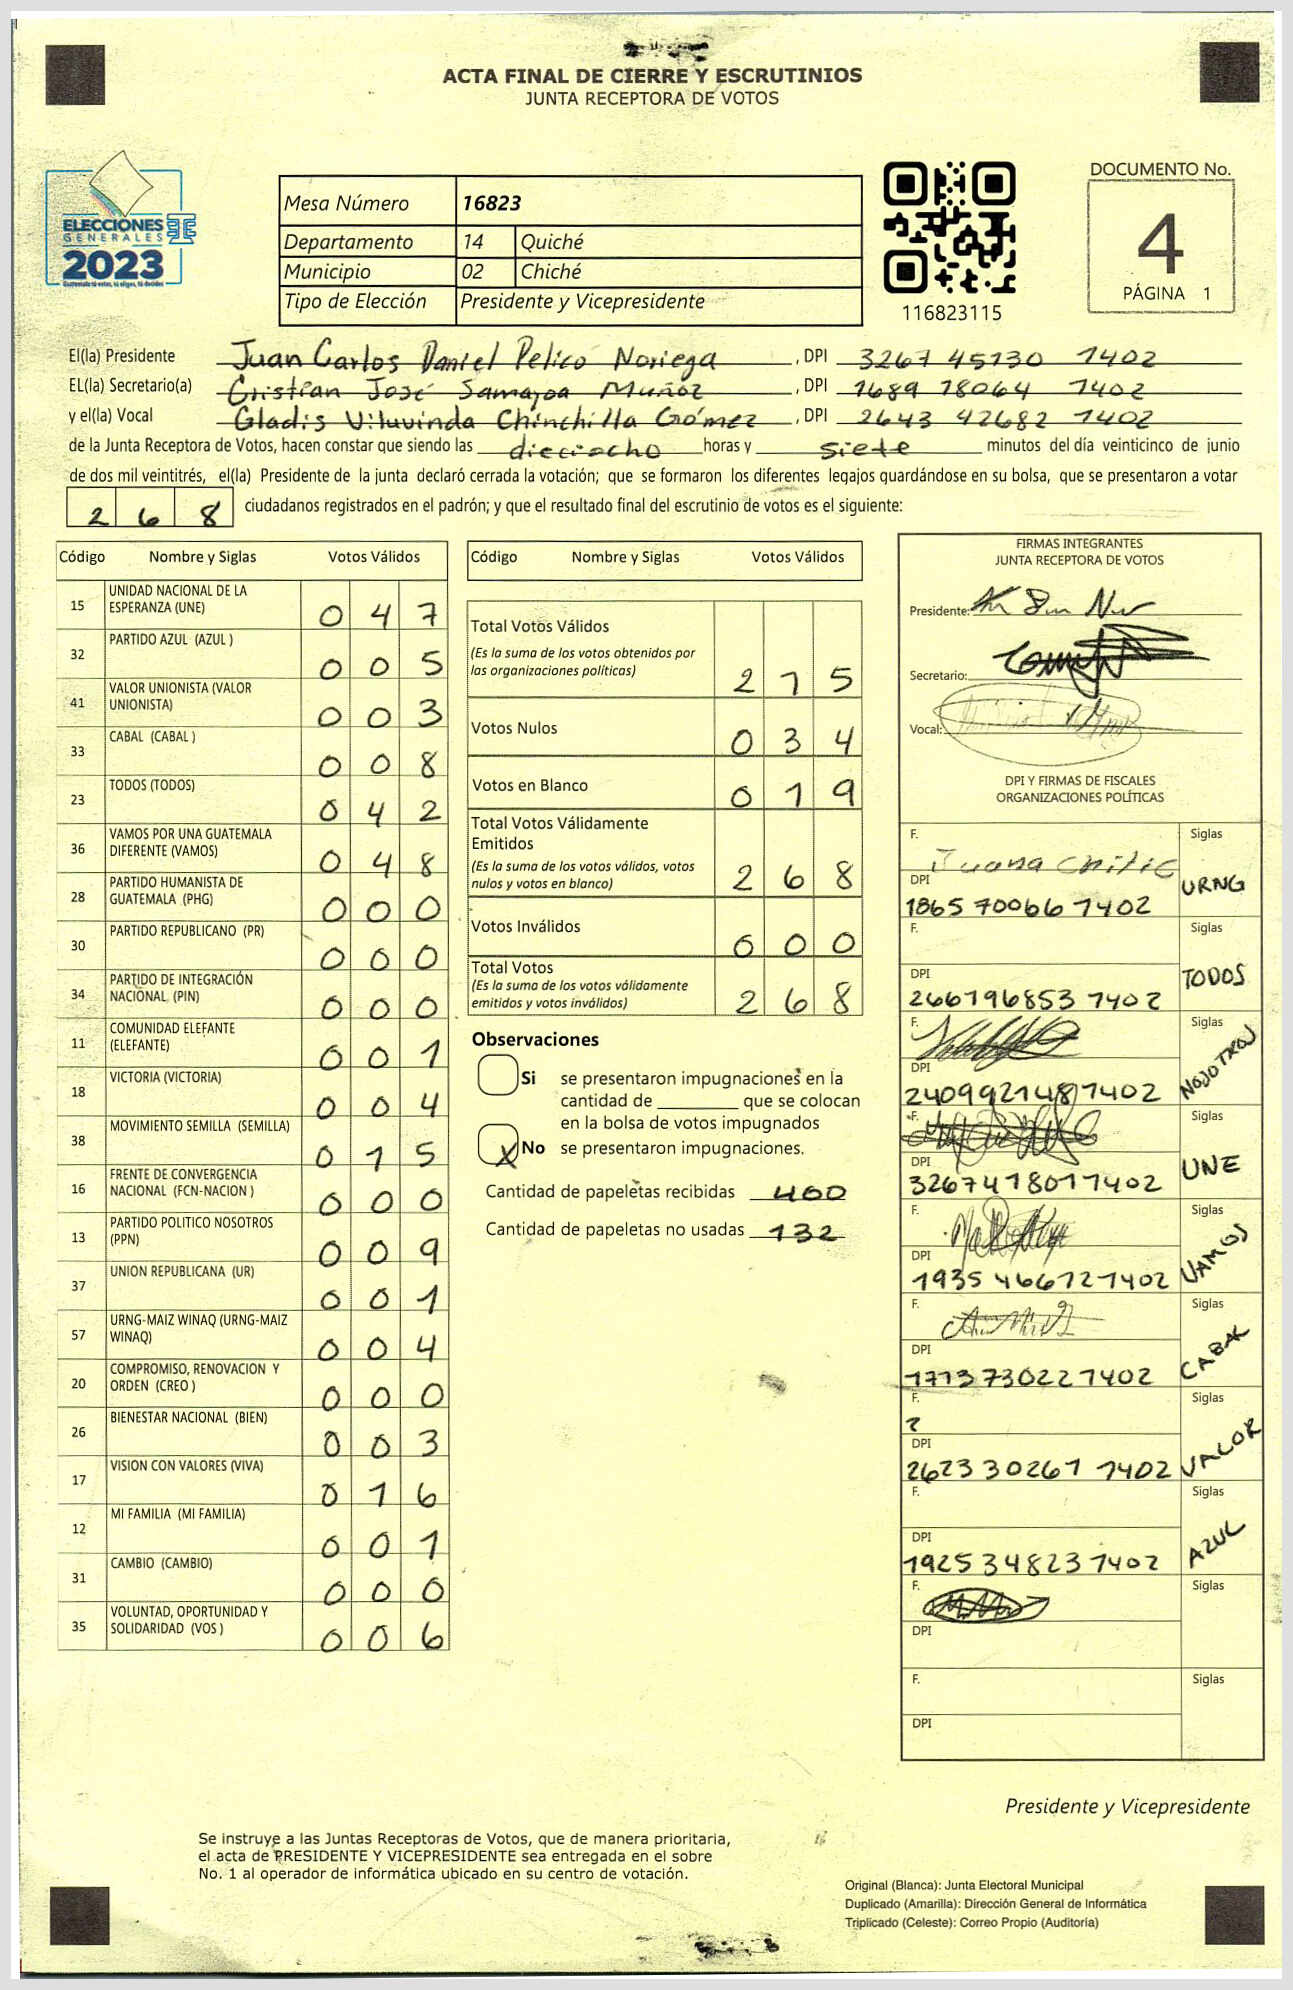 ACTA FINAL DE CIERRE Y ESCRUTINIOS
JUNTA RECEPTORA DE VOTOS
ELECCIONES
GENERALES
2023
Mesa Número 16823
Departamento 14 Quiché
Municipio 02 Chiché
Tipo de Elección Presidente y Vicepresidente
116823115
DOCUMENTO No.
4
PÁGINA 1
El(la) Presidente Juan Carlos Daniel Pelico Noriega, DPI 3267 45130 1402
EL(la) Secretario(a) Cristian José Samayoa Muñoz, DPI 1689 18064 1402
y el(la) Vocal Gladis Viluvinda Chinchilla Gómez, DPI 2643 42682 1402
de la Junta Receptora de Votos, hacen constar que siendo las dieciocho horas y siete minutos del día veinticinco de junio
de dos mil veintitrés, el(la) Presidente de la junta declaró cerrada la votación; que se formaron los diferentes legajos guardándose en su bolsa, que se presentaron a votar
268 ciudadanos registrados en el padrón; y que el resultado final del escrutinio de votos es el siguiente:
Código Nombre y Siglas Votos Válidos
15 UNIDAD NACIONAL DE LA
ESPERANZA (UNE) 0 4 7
32 PARTIDO AZUL (AZUL ) 0 0 5
41 VALOR UNIONISTA (VALOR
UNIONISTA) 0 0 3
33 CABAL (CABAL ) 0 0 8
23 TODOS (TODOS) 0 4 2
36 VAMOS POR UNA GUATEMALA
DIFERENTE (VAMOS) 0 4 8
28 PARTIDO HUMANISTA DE
GUATEMALA (PHG) 0 0 0
30 PARTIDO REPUBLICANO (PR) 0 0 0
34 PARTIDO DE INTEGRACIÓN
NACIONAL (PIN) 0 0 0
11 COMUNIDAD ELEFANTE
(ELEFANTE) 0 0 1
18 VICTORIA (VICTORIA) 0 0 4
38 MOVIMIENTO SEMILLA (SEMILLA) 0 1 5
16 FRENTE DE CONVERGENCIA
NACIONAL (FCN-NACION ) 0 0 0
13 PARTIDO POLITICO NOSOTROS
(PPN) 0 0 9
37 UNION REPUBLICANA (UR) 0 0 1
57 URNG-MAIZ WINAQ (URNG-MAIZ
WINAQ) 0 0 4
20 COMPROMISO, RENOVACION Y
ORDEN (CREO ) 0 0 0
26 BIENESTAR NACIONAL (BIEN) 0 0 3
17 VISION CON VALORES (VIVA) 0 1 6
12 MI FAMILIA (MI FAMILIA) 0 0 1
31 CAMBIO (CAMBIO) 0 0 0
35 VOLUNTAD, OPORTUNIDAD Y
SOLIDARIDAD (VOS ) 0 0 6
Código Nombre y Siglas Votos Válidos
Total Votos Válidos
(Es la suma de los votos obtenidos por
las organizaciones políticas) 2 1 5
Votos Nulos 0 3 4
Votos en Blanco 0 1 9
Total Votos Válidamente
Emitidos
(Es la suma de los votos válidos, votos
nulos y votos en blanco) 2 6 8
Votos Inválidos 0 0 0
Total Votos
(Es la suma de los votos válidamente
emitidos y votos inválidos) 2 6 8
Observaciones
Si se presentaron impugnaciones en la
cantidad de ________ que se colocan
en la bolsa de votos impugnados
X No se presentaron impugnaciones.
Cantidad de papeletas recibidas 400
Cantidad de papeletas no usadas 132
FIRMAS INTEGRANTES
JUNTA RECEPTORA DE VOTOS
Presidente:
Secretario:
Vocal:
DPI Y FIRMAS DE FISCALES
ORGANIZACIONES POLÍTICAS
F. Juana Siglas
DPI URNG
1865 70066 1402
F. Siglas
DPI TODOS
266196853 1402
F. Siglas
DPI NOSOTROS
2409921481402
F. Siglas
DPI UNE
3267418011402
F. Siglas
DPI VAMOS
1935 466721402
F. Siglas
DPI CABAL
1713730221402
F. Siglas
?
DPI VALOR
2623 30261 1402
F. Siglas
DPI AZUL
1925348231402
F. Siglas
DPI
F. Siglas
DPI
Presidente y Vicepresidente
Se instruye a las Juntas Receptoras de Votos, que de manera prioritaria,
el acta de PRESIDENTE Y VICEPRESIDENTE sea entregada en el sobre
No. 1 al operador de informática ubicado en su centro de votación.
Original (Blanca): Junta Electoral Municipal
Duplicado (Amarilla): Dirección General de Informática
Triplicado (Celeste): Correo Propio (Auditoría)